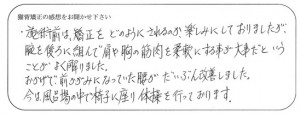 腸骨矯正の感想をお聞かせ下さい
・施術前は、矯正をどのようにされるのか、楽しみにしておりましたが、
腕を後ろに組んで肩や胸の筋肉を柔軟にする事が大事だという
ことがよく解りました。
おかげで前かがみになっていた腰がだいぶん改善しました。
今は、風呂場の中で椅子に座り体操を行っております。